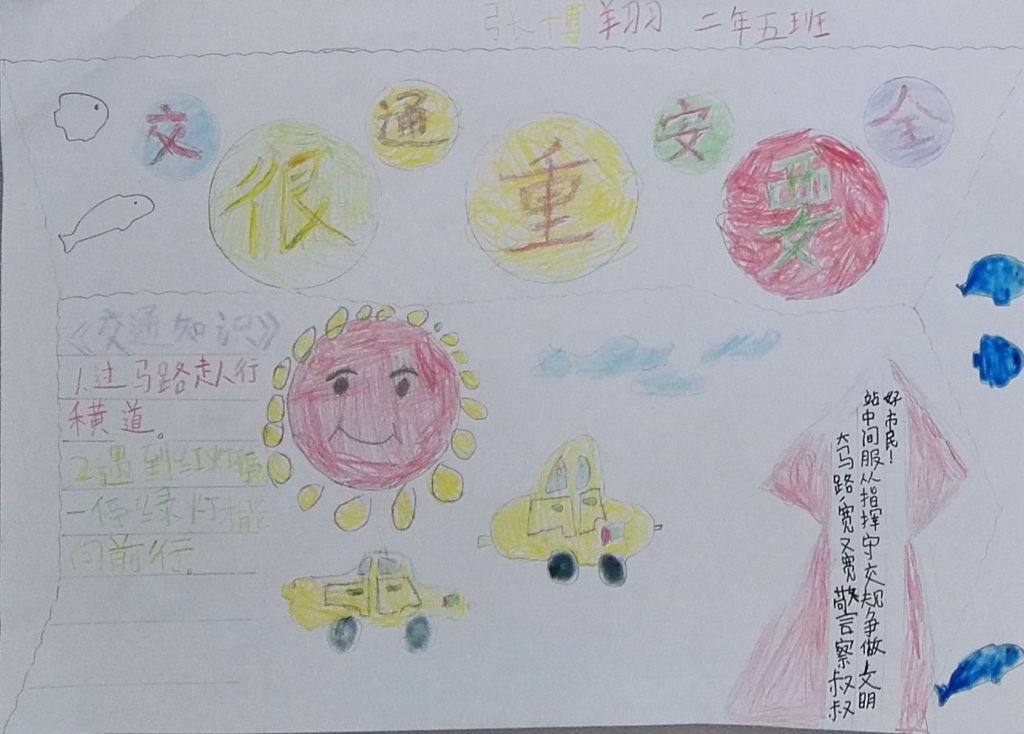 张博翔 二年五班
交通安全
很重要
《交通知识》
1.过马路走人行
横道。
2.遇到红灯停
一停绿灯
向前行。
大马路宽又宽警察叔叔
站中间服从指挥守交规争做文明
好市民！